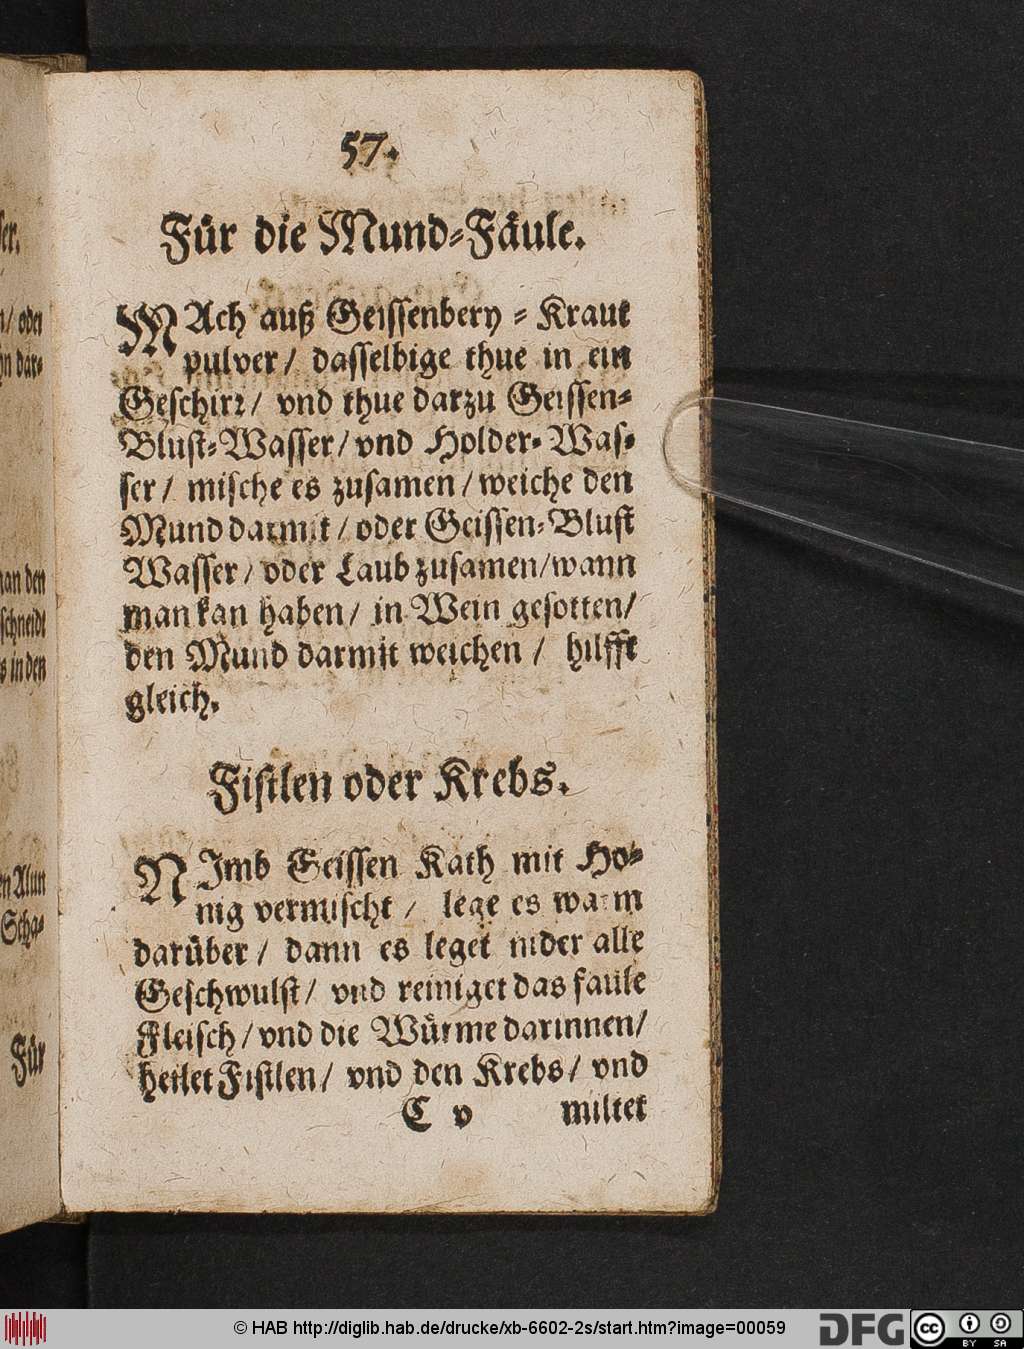 57.
Für die Mund-Fäule.
MAch auß Geissenbery-Kraut
pulver/ dasselbige thue in ein
Geschirr/ vnd thue darzu Geissen-
Blust-Wasser/ vnd Holder-Was-
ser/ mische es zusamen/ weiche den
Mund darmit/ oder Geissen-Blust
Wasser/ oder Laub zusamen/ wann
man kan haben/ in Wein gesotten/
den Mund darmit weichen/ hilfft
gleich.
Fistlen oder Krebs.
NImb Geissen Kath mit Ho-
nig vermischt/ lege es warm
darüber/ dann es leget nider alle
Geschwulst/ vnd reiniget das faule
Fleisch/ vnd die Würme darinnen/
heilet Fistlen/ vnd den Krebs/ vnd
C v miltet
ser.
n/ oder
hn dar-
man den
schneidt
s in den
en Alun
Scha-
Für
© HAB http://diglib.hab.de/drucke/xb-6602-2s/start.htm?image=00059
DFG
cc BY SA